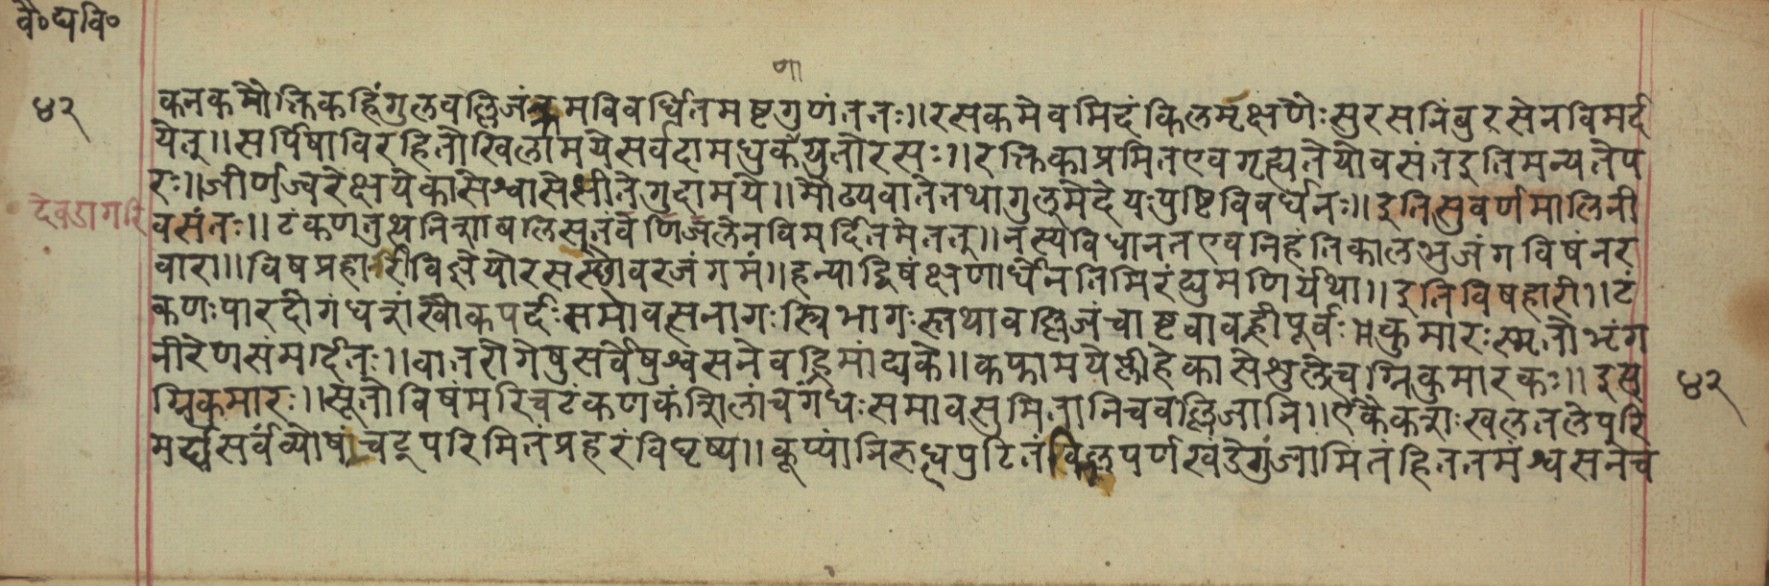 वै॰द्यवि॰
४२
कनकमौक्तिकहिंगुलवल्लिजंक्रमविवर्धितमष्टगुणंततः॥रसकमेवमिदंकिलमृक्षणैःसुरसनिंबुरसेनविमर्द
येत्॥सर्पिषाविरहितोखिलामयेसर्वदामधुकणयुतोरसः॥रक्तिकाप्रमितएवगृह्यतेयोवसंतइतिमन्यतेप
रः॥जीर्णज्वरेक्षयेकासेश्वासेक्षीतेगुदामये॥मौढ्यवातेतथागुल्मेदेयःपुष्टिविवर्धनः॥इतिसुवर्णमालिनी
देवडागरि
वसंतः॥टंकणतुथनिशाबलिसूतंवेणिजलेनविमर्दितमेतत्॥नस्यविधानतएवनिहंतिकालभुजंगविषंनर
वारा॥विषप्रहारीविज्ञेयोरसस्छावरजंगमं॥हन्याद्विषंक्षणार्धेनतिमिरंद्युमणिर्यथा॥इतिविषहारी॥टं
कणःपारदोगंधशंखौकपर्दःसमोवत्सनागःस्त्रिभागःस्तथावल्लिजंचाष्टवावह्नीपूर्वःकुमारःस्मृतोभृंग
नीरेणसंमर्दितः॥वातरोगेषुसर्वेषुश्वसनेवह्निमांद्यके॥कफामयेप्लीहेकासेशूलेचग्निकुमारकः॥इत्य
४२
ग्निकुमारः॥सूतोविषंमरिचटंकणकंशिलांचगंधःसमावसुमितानिचवल्लिजानि॥एकैकशःखलतलेपरि
मर्द्यसर्वंव्योषांचदूपरिमितंप्रहरंविघृष्य॥कूप्यांनिरुध्यपुटितंविल्लपर्णखंडेगुंजामितंहिततमंश्वसनेच